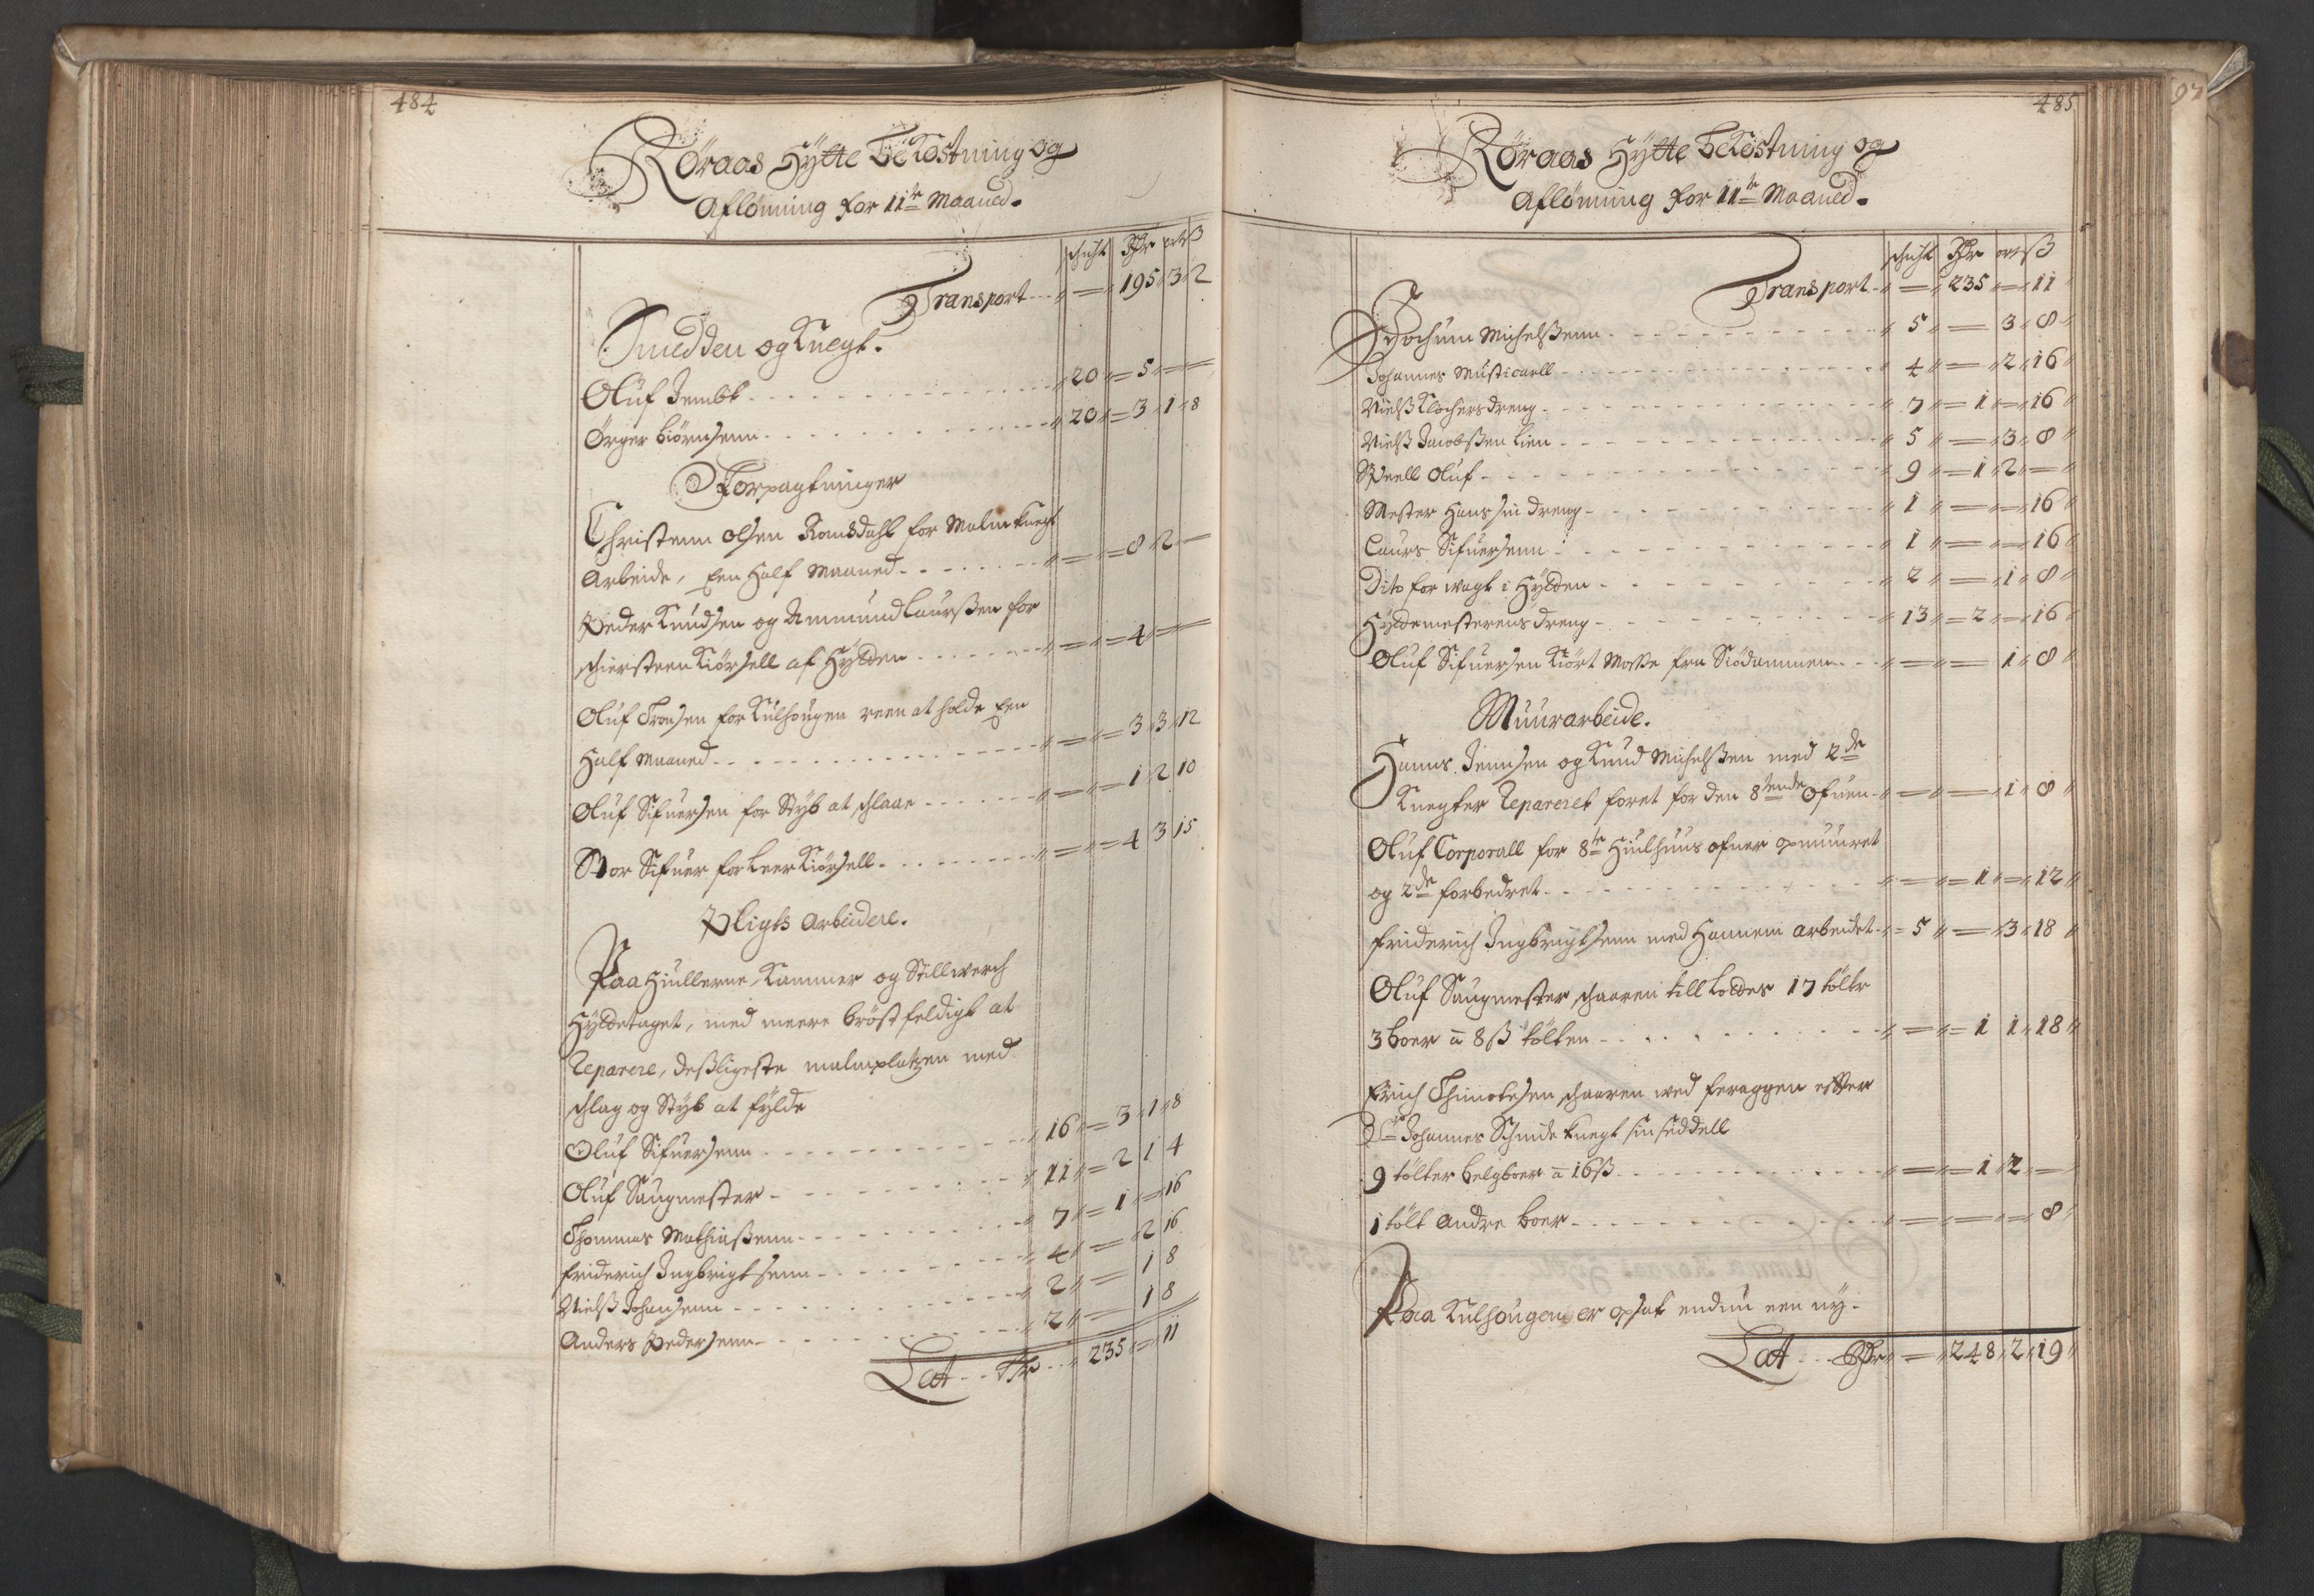 484
Röraas Hytte Bekostning og
Aflönning for 11te Maaned.
schicht Rdr ort ß
Transport - - - 〃 = 〃 = 195 〃 3 〃 2
Smedden og Knegt.
Oluf Jembt - - - 〃 20 〃 = 5 〃 = =
Örger Biörnsenn - - - 〃 20 〃 = 3 〃 1 〃 8
Forpagtninger
Christenn Olsen Romsdahl for Malm Knegt
Arbeide, Een Half Maaned - - - 〃 = 〃 = 8 〃 2 =
Peder Knudsen og Ammund Laurßen for
schiersteen Kiörsell af Hytten - - - 〃 = 〃 = 4 〃 = =
Oluf Tronsen for Kulhougen reen at holde Een
Half Maaned - - - 〃 = 〃 = 3 〃 3 〃 12
Oluf Sifuersen for Styb at schlaae - - - 〃 = 〃 = 1 〃 2 〃 10
Stor Sifuer for Leer Kiörsell - - - 〃 = 〃 = 4 〃 3 〃 15
Pligts Arbeidere.
Paa Hiullerne, Kammer og Stillwerch
Hyttetaget, med meere bröstfeldigt at
Reparere, desligeste malmplatzen med
schlag og Styb at fylde
Oluf Sifuersenn - - - 〃 16 〃 = 3 〃 1 〃 8
Oluf Saugmester - - - 〃 11 〃 = 2 〃 1 〃 4
Thommas Mathiaßenn - - - 〃 7 〃 = 1 〃 = 16
Friderich Ingbrigtsenn - - - 〃 4 〃 = 〃 2 〃 16
Nielß Johansenn - - - 〃 2 〃 = 1 〃 8
Anders Pedersenn - - - 〃 2 〃 = 1 〃 8
Lat - - Rdr - - 〃 235 〃 = 〃 11
485
Röraas Hytte Bekostning og
Aflönning for 11te Maaned.
schicht Rdr ort ß
Transport - 〃 = 〃 235 〃 = 〃 11
Jochum Michelßenn - - - 〃 5 〃 = 3 〃 8 〃
Johannes Musticaell - - - 〃 4 〃 = 〃 2 〃 16 〃
Nielß Klochers dreng - - - 〃 7 〃 = 1 〃 = 〃 16 〃
Nielß Jacobßen Lien - - - 〃 5 〃 = 〃 3 〃 8 〃
Oluf - - - 〃 9 〃 = 1 〃 2 〃 = 〃
Mester Hans sin dreng - - - 〃 1 〃 = = 〃 16 〃
Laurs Sifuersenn - - - 〃 1 〃 = = 〃 16 〃
Dito for wagt i Hytten - - - 〃 2 〃 = 〃 1 〃 8 〃
Hyttemesterens dreng - - - 〃 13 〃 = 2 〃 = 〃 16 〃
Oluf Sifuersen Kiört Maße fra Siödammen - - - 〃 = 〃 = 1 〃 8 〃
Muurarbeide.
Hanns Jennsen og Knud Michelßen med 2de
Knegter Repareret foret for den 8tende Ofuen - 〃 = 〃 = 〃 1 〃 8 〃
Oluf Corporall for 8te Hiulhuus ofner opmuuret
og 2de forbedret - - - 〃 = 〃 = 1 〃 = 〃 12 〃
Friderich Ingbrigtsenn med Hannem arbeidet - 〃 = 5 〃 = 〃 3 〃 18 〃
Oluf Saugmester schaaren till loldes 17 tölter
3 boer a 8 ß tölten - - - 〃 = 〃 = 1 〃 1 〃 18 〃
Erich Thimotesen schaaren wed feraggen efter
Johannes Schmide Knegt sin seddell
9 tölter belgboer a 16 ß - - - 〃 = 〃 = 1 〃 2 〃 =
1 tölt Andre boer - - - 〃 = 〃 = = 〃 8 〃
Paa Kulhougen er opsat endnu een ny -
Lat - - Rdr 〃 = 〃 248 〃 2 〃 19 〃